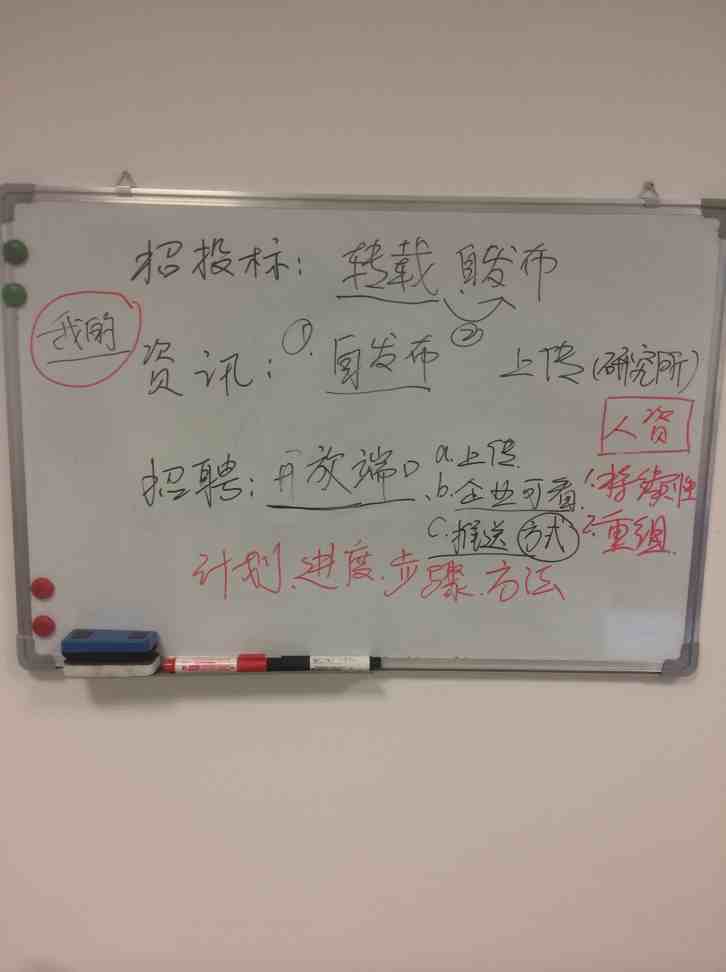 招投标：转载 自发布
我的
资讯：①. 自发布 ② 上传(研究所)
人资
招聘：开放端口
a.上传
b.企业可看
c.推送方式
1.持续性
2.重组
计划、进度、步骤、方法